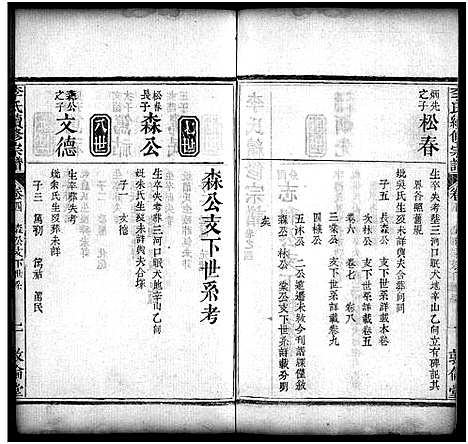 李氏續修宗譜 卷四
敦倫堂
炳先
之子 松春
生卒失考葬三河口眠犬地辛山乙向立有碑記
界各照舊規
娶吳氏生歿未詳與夫合葬同向
子五 長森公 支下世系詳載本卷
次林公 支下世系詳載卷五
卷六 卷七 卷八
三棠公 支下世系詳載卷九
四棣公
五沐公
森公 林公 棠公支下世系詳載分明
矣
森公支下世系考
七世
松春
長子 森公
生卒失考葬三河口眠犬地辛山乙向
娶朱氏生歿未詳與夫合塚
子 文德
八世
森公
之子 文德
生卒葬失考
娶余氏生歿葬未詳
子三 萬朝
李氏續修宗譜 卷四 森公支下世系 二 敦倫堂